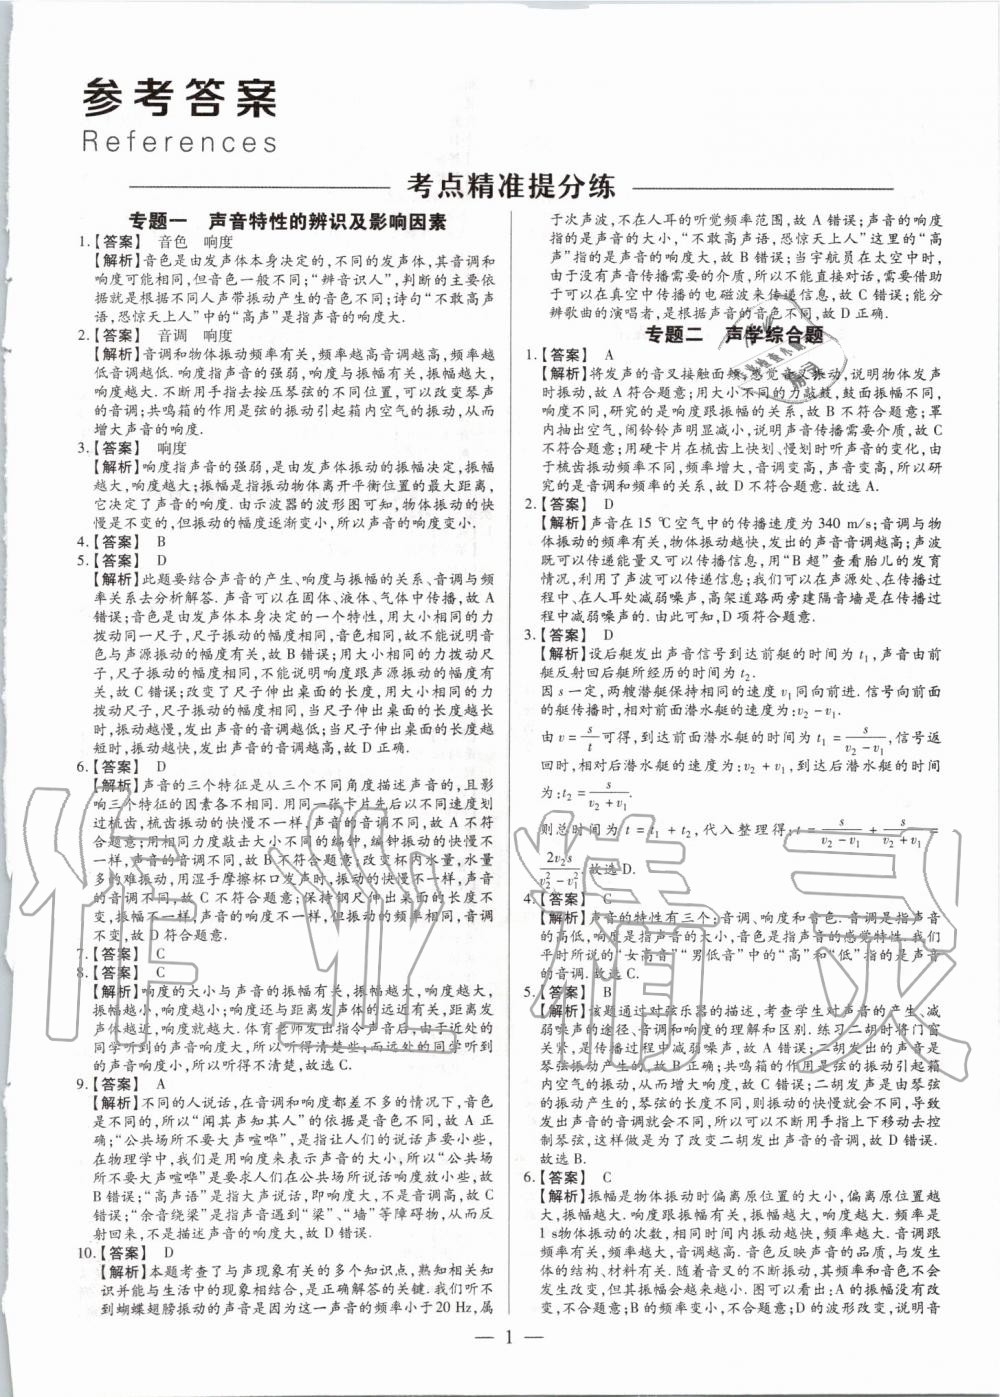 参考答案
References
考点精准提分练
专题一 声音特性的辨识及影响因素
1.【答案】 音色 响度
【解析】音色是由发声体本身决定的,不同的发声体,其音调和
响度可能相同,但音色一般不同;“辨音识人”,判断的主要依
据就是根据不同人声带振动产生的音色不同;诗句“不敢高声
语,恐惊天上人”中的“高声”是指声音的响度大.
2.【答案】 音调 响度
【解析】音调和物体振动频率有关,频率越高音调越高,频率越
低音调越低.响度指声音的强弱,响度与振幅有关,振幅越大,
响度越大.不断用手指去按压琴弦的不同位置,可以改变琴声
的音调;共鸣箱的作用是弦的振动引起箱内空气的振动,从而
增大声音的响度.
3.【答案】 响度
【解析】响度指声音的强弱,是由发声体振动的振幅决定,振幅
越大,响度越大;振幅是指振动物体离开平衡位置的最大距离,
它决定了声音的响度.由示波器的波形图可知,物体振动的快
慢是不变的,但振动的幅度逐渐变小,所以声音的响度变小.
4.【答案】 B
5.【答案】 D
【解析】此题要结合声音的产生、响度与振幅的关系、音调与频
率关系去分析解答.声音可以在固体、液体、气体中传播,故A
错误;音色是由发声体本身决定的一个特性,用大小相同的力
拨动同一尺子,尺子振动的幅度相同,音色相同,故不能说明音
色与声源振动的幅度有关,故B错误;用大小相同的力拨动尺
子,尺子振动的幅度相同,不能说明响度跟声源振动的幅度有
关,故C错误;改变了尺子伸出桌面的长度,用大小相同的力
拨动尺子,尺子振动的幅度相同,当尺子伸出桌面的长度越长
时,振动越慢,发出声音的音调越低;当尺子伸出桌面的长度越
短时,振动越快,发出声音的音调越高,故D正确.
6.【答案】 D
【解析】声音的三个特征是从三个不同角度描述声音的,且影
响三个特征的因素各不相同.用同一张卡片先后以不同速度划
过梳齿,梳齿振动的快慢不一样,声音的音调不同,故A不符
合题意;用相同力度敲击大小不同的编钟,编钟振动的快慢不
一样,声音的音调不同,故B不符合题意;改变杯内水量,水量
多的难振动,用湿手摩擦杯口发声时,振动的快慢不一样,声音
的音调不同,故C不符合题意;保持钢尺伸出桌面的长度不
变,振幅不一样,声音的响度不同,振动的频率相同,音调
不变,故D符合题意.
7.【答案】 C
8.【答案】 C
【解析】响度的大小与声音的振幅有关,振幅越大,响度越大,
振幅越小,响度越小;响度还与距离发声体的远近有关,距离发
声体越近,响度就越大.体育老师发出指令声后,由于近处的
同学听到的声音响度大,所以听得清楚些;而远处的同学听到
的声音响度小,所以听得不清楚,故选C.
9.【答案】 A
【解析】不同的人说话,在音调和响度都差不多的情况下,音色
是不同的,所以“闻其声知其人”的依据是音色不同,故A正
确;“公共场所不要大声喧哗”,是指让人们的说话声要小些,
在物理学中,我们是用响度来表示声音的大小,所以“公共场
所不要大声喧哗”是要求人们在公共场所说话响度放小些,故
B错误;“高声语”是指大声说话,即响度大,不是音调高,故C
错误;“余音绕梁”是指声音遇到“梁”、“墙”等障碍物,从而反
射回来,不是描述声音的响度大,故D错误.
10.【答案】 D
【解析】本题考查了与声现象有关的多个知识点,熟知相关知
识并能与生活中的现象相结合,是正确解答的关键.我们听不
到蝴蝶翅膀振动的声音是因为这一声音的频率小于20 Hz,属
于次声波,不在人耳的听觉频率范围,故A错误;声音的响度
指的是声音的大小,“不敢高声语,恐惊天上人”这里的“高
声”指的是声音的响度大,故B错误;当宇航员在太空中时,
由于没有声音传播需要的介质,所以不能直接对话,需要借助
于可以在真空中传播的电磁波来传递信息,故C错误;能分
辨歌曲的演唱者,是根据声音的音色不同,故D正确.
专题二 声学综合题
1.【答案】 A
【解析】将发声的音叉接触面颊,感觉音叉振动,说明物体发声
时振动,故A符合题意;用大小不同的力敲鼓,鼓面振幅不同,
响度不同,研究的是响度跟振幅的关系,故B不符合题意;罩
内抽出空气,闹铃铃声明显减小,说明声音传播需要介质,故C
不符合题意;用硬卡片在梳齿上快划、慢划时听声音的变化,由
于梳齿振动频率不同,频率增大,音调变高,声音变高,所以研
究的是音调和频率的关系,故D不符合题意.故选A.
2.【答案】 D
【解析】声音在15 ℃空气中的传播速度为340 m/s;音调与物
体振动的频率有关,物体振动越快,发出的声音音调越高;声波
既可以传递能量又可以传播信息,用“B超”查看胎儿的发育
情况,利用了声波可以传递信息;我们可以在声源处、在传播过
程中、在人耳处减弱噪声,高架道路两旁建隔音墙是在传播过
程中减弱噪声的.由此可知,D项符合题意.
3.【答案】 D
【解析】设后艇发出声音信号到达前艇的时间为t₁,声音由前
艇反射回后艇所经历的时间为t₂.
因s一定,两艘潜艇保持相同的速度v₁同向前进.信号向前面
的艇传播时,相对前面潜水艇的速度为:v₂-v₁.
由v=s/t可得,到达前面潜水艇的时间为t₁=s/(v₂-v₁),信号返
回时,相对后潜水艇的速度为:v₂+v₁,到达后潜水艇的时间
为:t₂=s/(v₂+v₁).
则总时间为t=t₁+t₂,代入整理得:t=s/(v₂-v₁)+s/(v₂+v₁)=
2v₂s/(v₂²-v₁²).故选D.
4.【答案】 C
【解析】声音的特性有三个:音调、响度和音色.音调是指声音
的高低,响度是指声音的大小,音色是指声音的感觉特性.我们
平时所说的“女高音”“男低音”中的“高”和“低”指的是声音
的音调.故选C.
5.【答案】 B
【解析】该题通过对弦乐器的描述,考查学生对声音的产生、减
弱噪声的途径、音调和响度的理解和区别.练习二胡时将门窗
关紧,是在传播过程中减弱噪声,故A错误;二胡发出的声音是
琴弦振动产生的,故B正确;共鸣箱的作用是琴弦的振动引起箱
内空气的振动,从而增大响度,故C错误;二胡发声是由琴弦
的振动产生的,琴弦的长度不同,则振动的快慢就会不同,导致
发出声音的音调会不同,所以可以不断用手指上下移动去控
制琴弦,这样做是为了改变二胡发出声音的音调,故D错误.
故选B.
6.【答案】 C
【解析】振幅是物体振动时偏离原位置的大小,偏离原位置越
大,振幅越大.响度与振幅有关,振幅越大,响度越大.频率是
1 s物体振动的次数,相同时间内振动次数越大,频率越大.音调跟
频率有关,频率越大,音调越高.音色反映声音的品质,与发生
体的结构、材料有关.随着音叉的不断振动,其音调和音色不会
发生变化,而响度会逐渐减小.图可以看出:A的振幅没有改
变,不合题意;B的频率变小,不合题意;D的波形改变,说明音
— 1 —
作业精灵